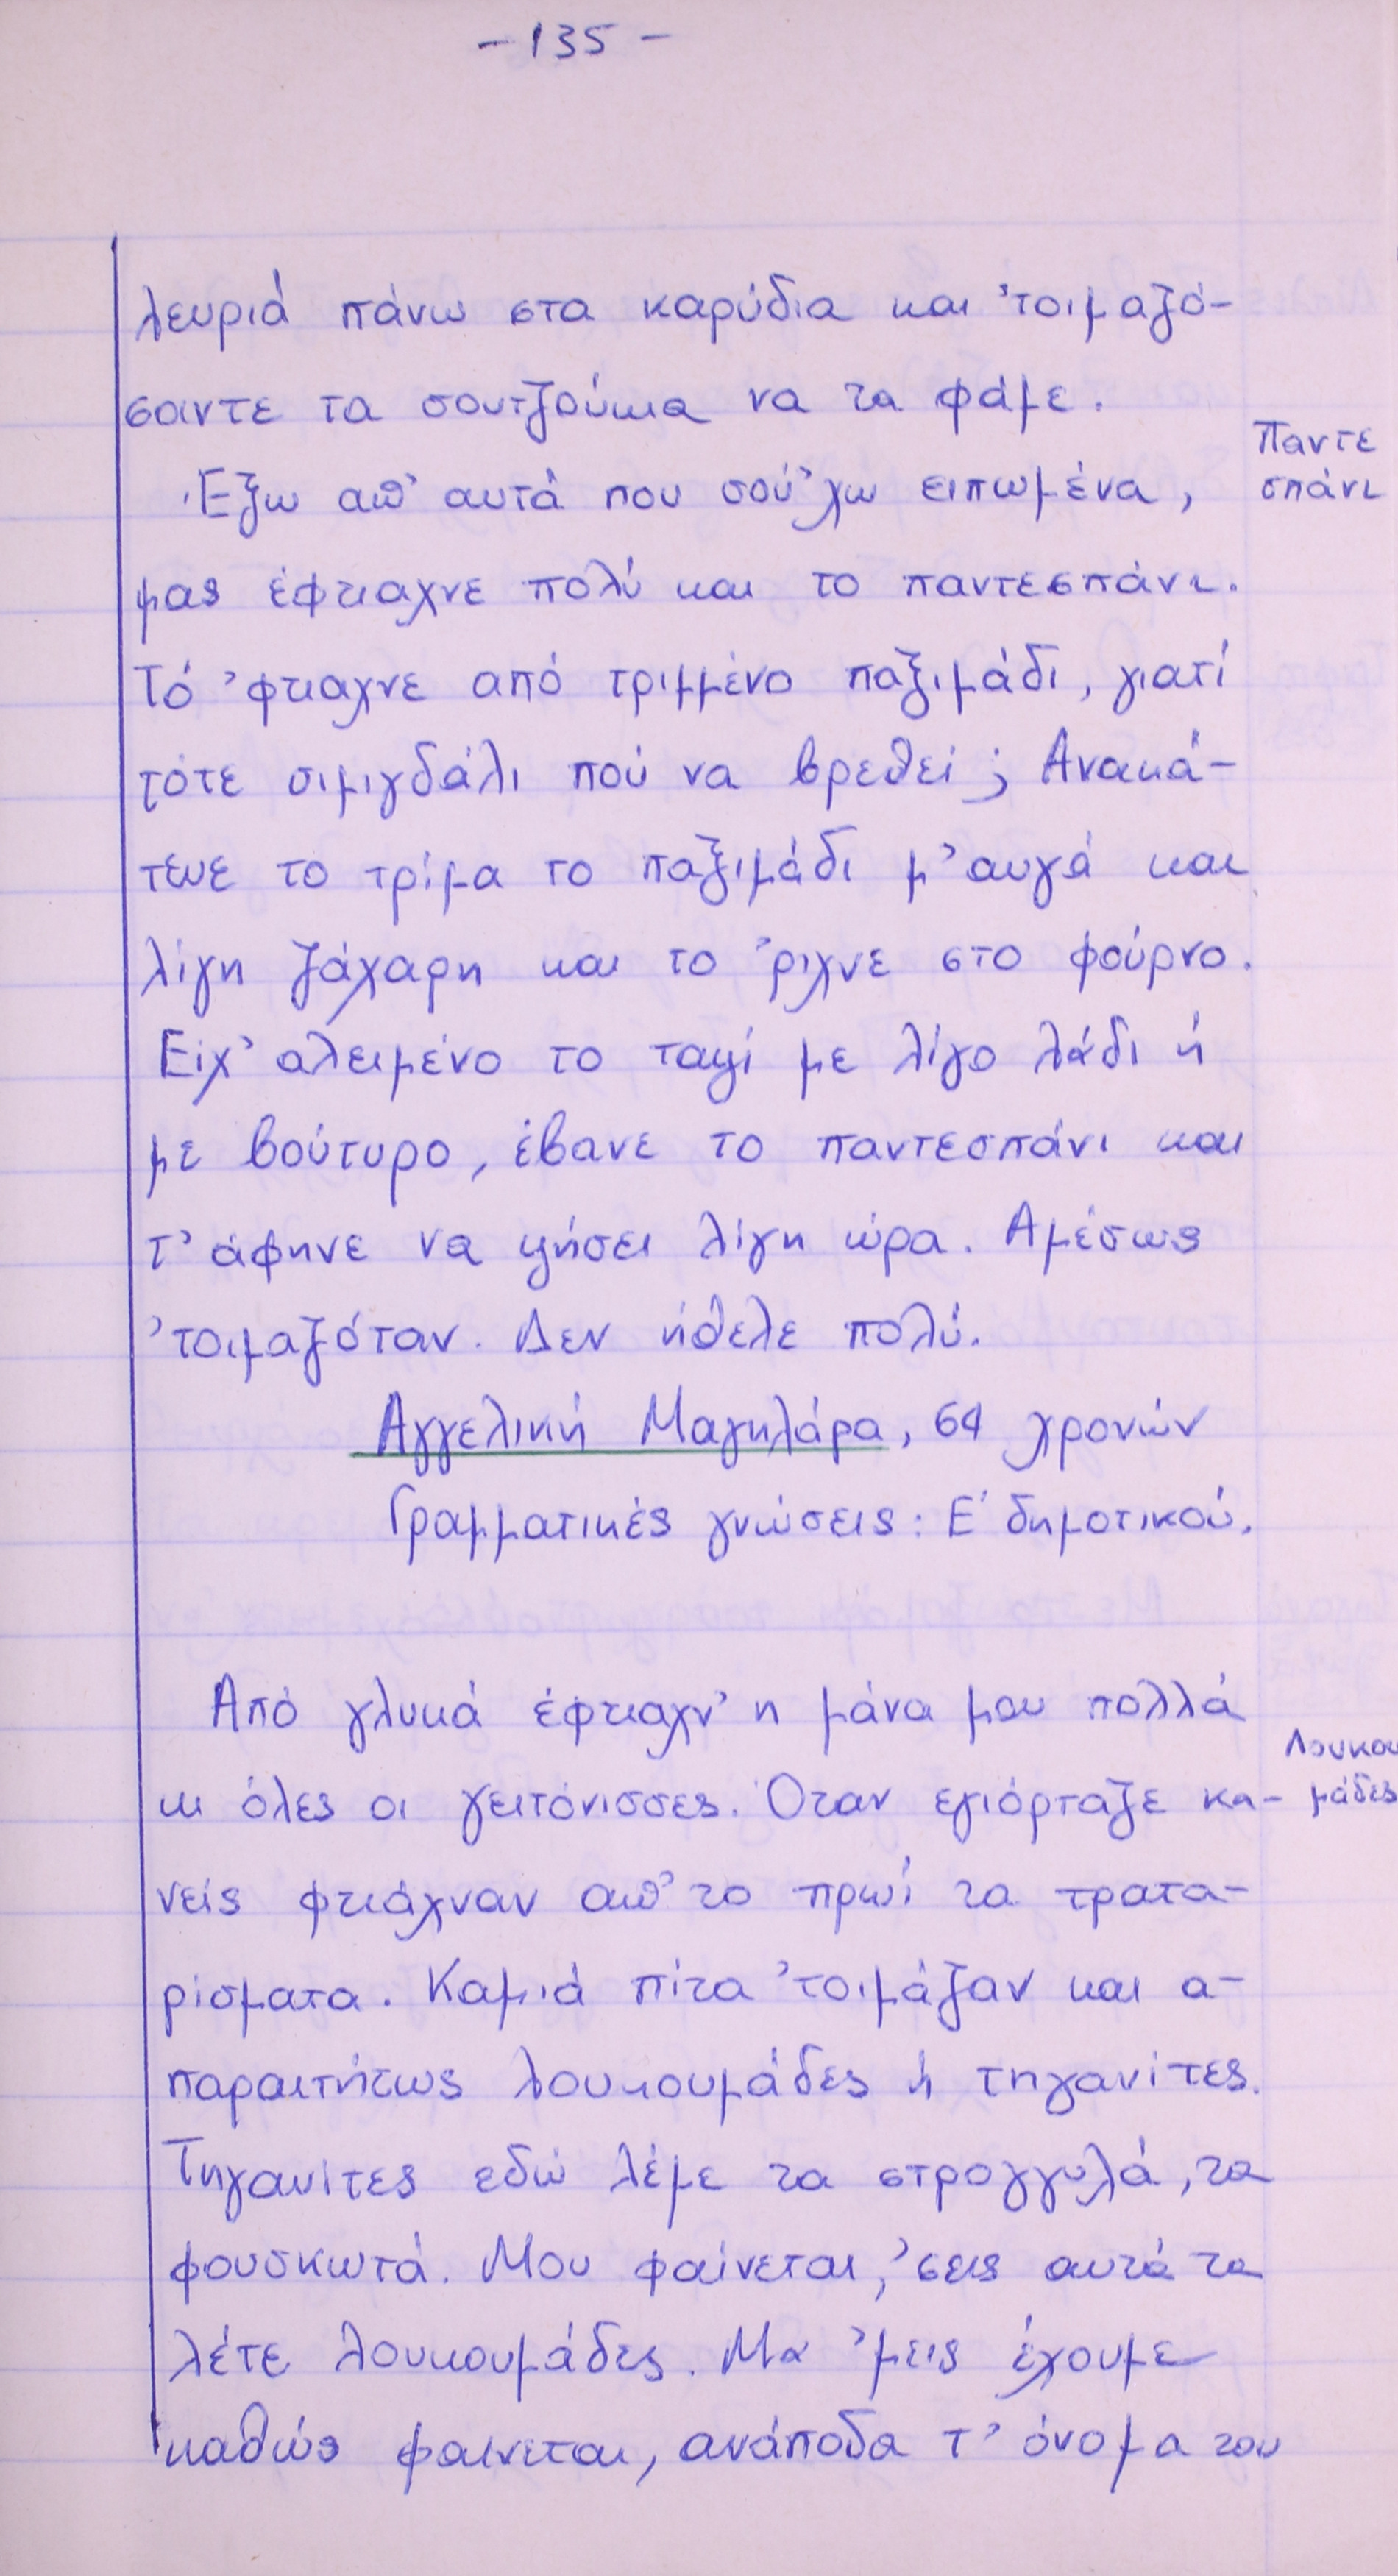 - 135 -
λευριά πάνω στα καρύδια και 'τοιμαζό-
σαντε τα σουτζούκια να τα φάμε.
Παντε
Έξω απ' αυτά που σού'χω ειπωμένα,
σπάνι
μας έφτιαχνε πολύ και το παντεσπάνι.
Τό 'φτιαχνε από τριμμένο παξιμάδι, γιατί
τότε σιμιγδάλι πού να βρεθεί; Ανακά-
τευε το τρίμα το παξιμάδι μ' αυγά και
λίγη ζάχαρη και το 'ριχνε στο φούρνο.
Είχ' αλειμένο το ταψί με λίγο λάδι ή
με βούτυρο, έβανε το παντεσπάνι και
τ' άφηνε να ψήσει λίγη ώρα. Αμέσως
'τοιμαζόταν. Δεν ήθελε πολύ.
Αγγελική Μαγκλάρα, 64 χρονών
Γραμματικές γνώσεις: Ε' δημοτικού.
Από γλυκά έφτιαχν' η μάνα μου πολλά
Λουκου
κι όλες οι γειτόνισσες. Όταν εγιόρταζε κα-
μάδες
νείς φτιάχναν απ' το πρωί τα τρατα-
ρίσματα. Καμιά πίτα 'τοιμάζαν και α-
παραιτήτως λουκουμάδες ή τηγανίτες.
Τηγανίτες εδώ λέμε τα στρογγυλά, τα
φουσκωτά. Μου φαίνεται, 'σεις αυτά τα
λέτε λουκουμάδες. Μα 'μεις έχουμε
καθώς φαίνεται, ανάποδα τ' όνομα του